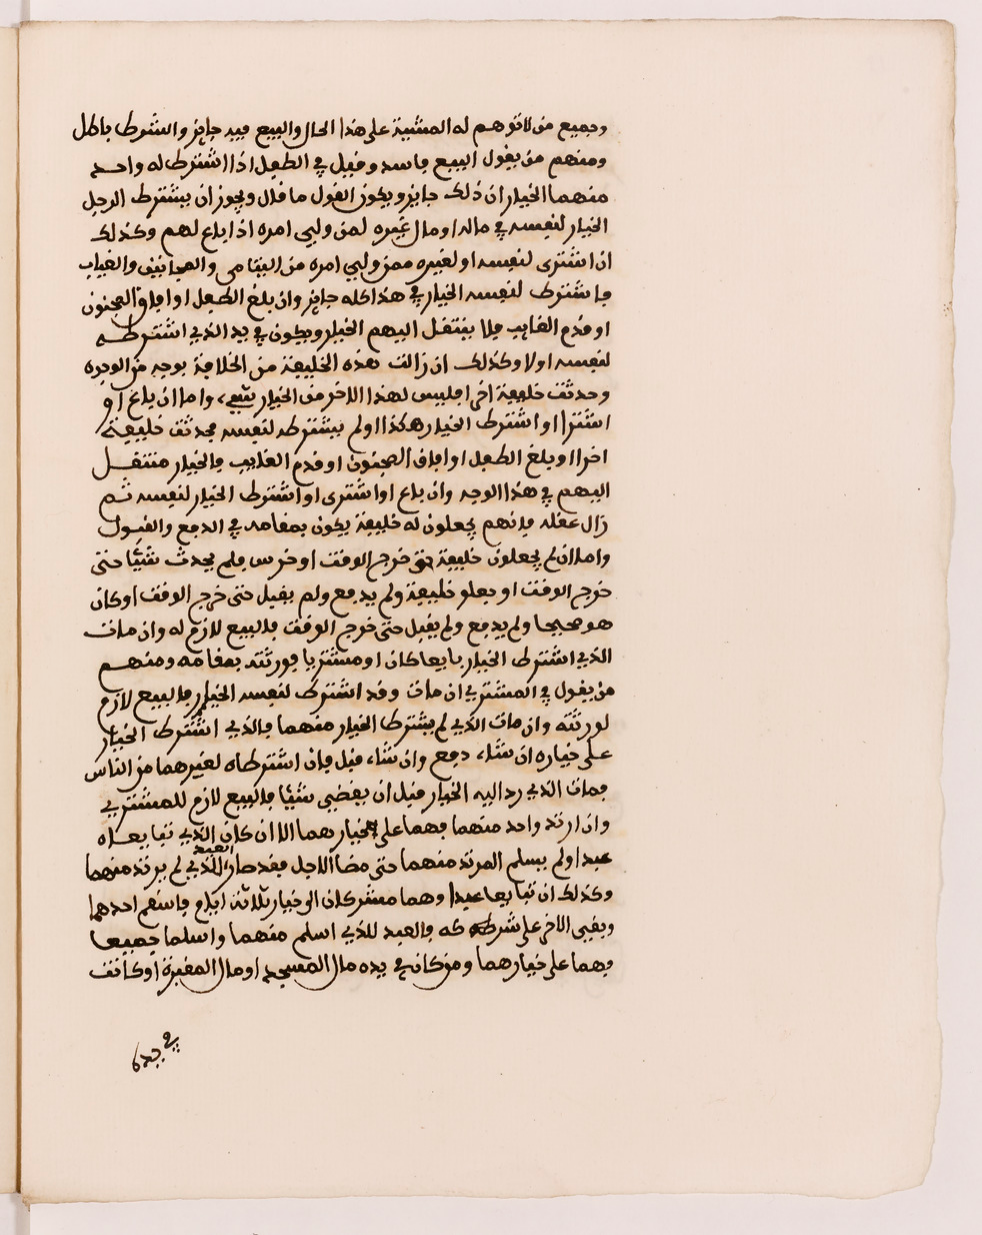 وجميع من لا توهم له المشيئة على هذا الحال والبيع فيه جايز والشرط باطل
ومنهم من يقول البيع فاسد وقيل في الطفل اذا اشترط له واحد
منهما الخيار ان ذلك جايز ويكون القول ما قال ويجوز ان يشترط الرجل
الخيار لنفسه في ماله او مال غيره لمن ولي امره اذا باع لهم وكذلك
ان اشترى لنفسه او لغيره ممن ولي امره من اليتامى والمجانين والغياب
فاشترط لنفسه الخيار في هذا كله جايز وان بلغ الطفل او افاق المجنون
او قدم الغايب فلا ينتقل اليهم الخيار ويكون في يد الذي اشترطه
لنفسه اولا وكذلك ان زالت هذه الخليفة من الخلافة بوجه من الوجوه
وحدثت خليفة اخرى فليس لهذا الاخر من الخيار شيء واما ان باع او
اشترا او اشترط الخيار هكذا ولم يشترطه لنفسه فحدثت خليفة
اخرا او بلغ الطفل او افاق المجنون او قدم الغايب فالخيار منتقل
اليهم في هذا الوجه وان باع او اشترى او اشترط الخيار لنفسه ثم
زال عقله فانهم يجعلون له خليفة يكون بمقامه في الدفع والقبول
واما ان لم يجعلون خليفة حتى خرج الوقت او خرس فلم يحدث شيئا حتى
خرج الوقت او جعلو خليفة ولم يدفع ولم يقبل حتى خرج الوقت او كان
هو صحيحا ولم يدفع ولم يقبل حتى خرج الوقت فالبيع لازم له وان مات
الذي اشترط الخيار بايعا كان او مشتريا فورثته بمقامه ومنهم
من يقول في المشتري ان مات وقد اشترط لنفسه الخيار فالبيع لازم
لورثته وان مات الذي لم يشترط الخيار منهما فالذي اشترط الخيار
على خياره ان شاء دفع وان شاء قبل فان اشترطاه لغيرهما من الناس
فمات الذي رد اليه الخيار قبل ان يقضي شيئا فالبيع لازم للمشتري
وان ارتد واحد منهما فهما على خيارهما الا ان كان الذي تبايعاه
عبدا ولم يسلم المرتد منهما حتى مضا الاجل فقد صار العبد للذي لم يرتد منهما
وكذلك ان تبايعا عبدا وهما مشركان الى خيار ثلاثة ايام فاسلم احدهما
وبقي الاخر على شركه فالعبد للذي اسلم منهما واسلما جميعا
فهما على خيارهما ومن كان في يده مال المسجد او مال المقبرة او كانت
في يده